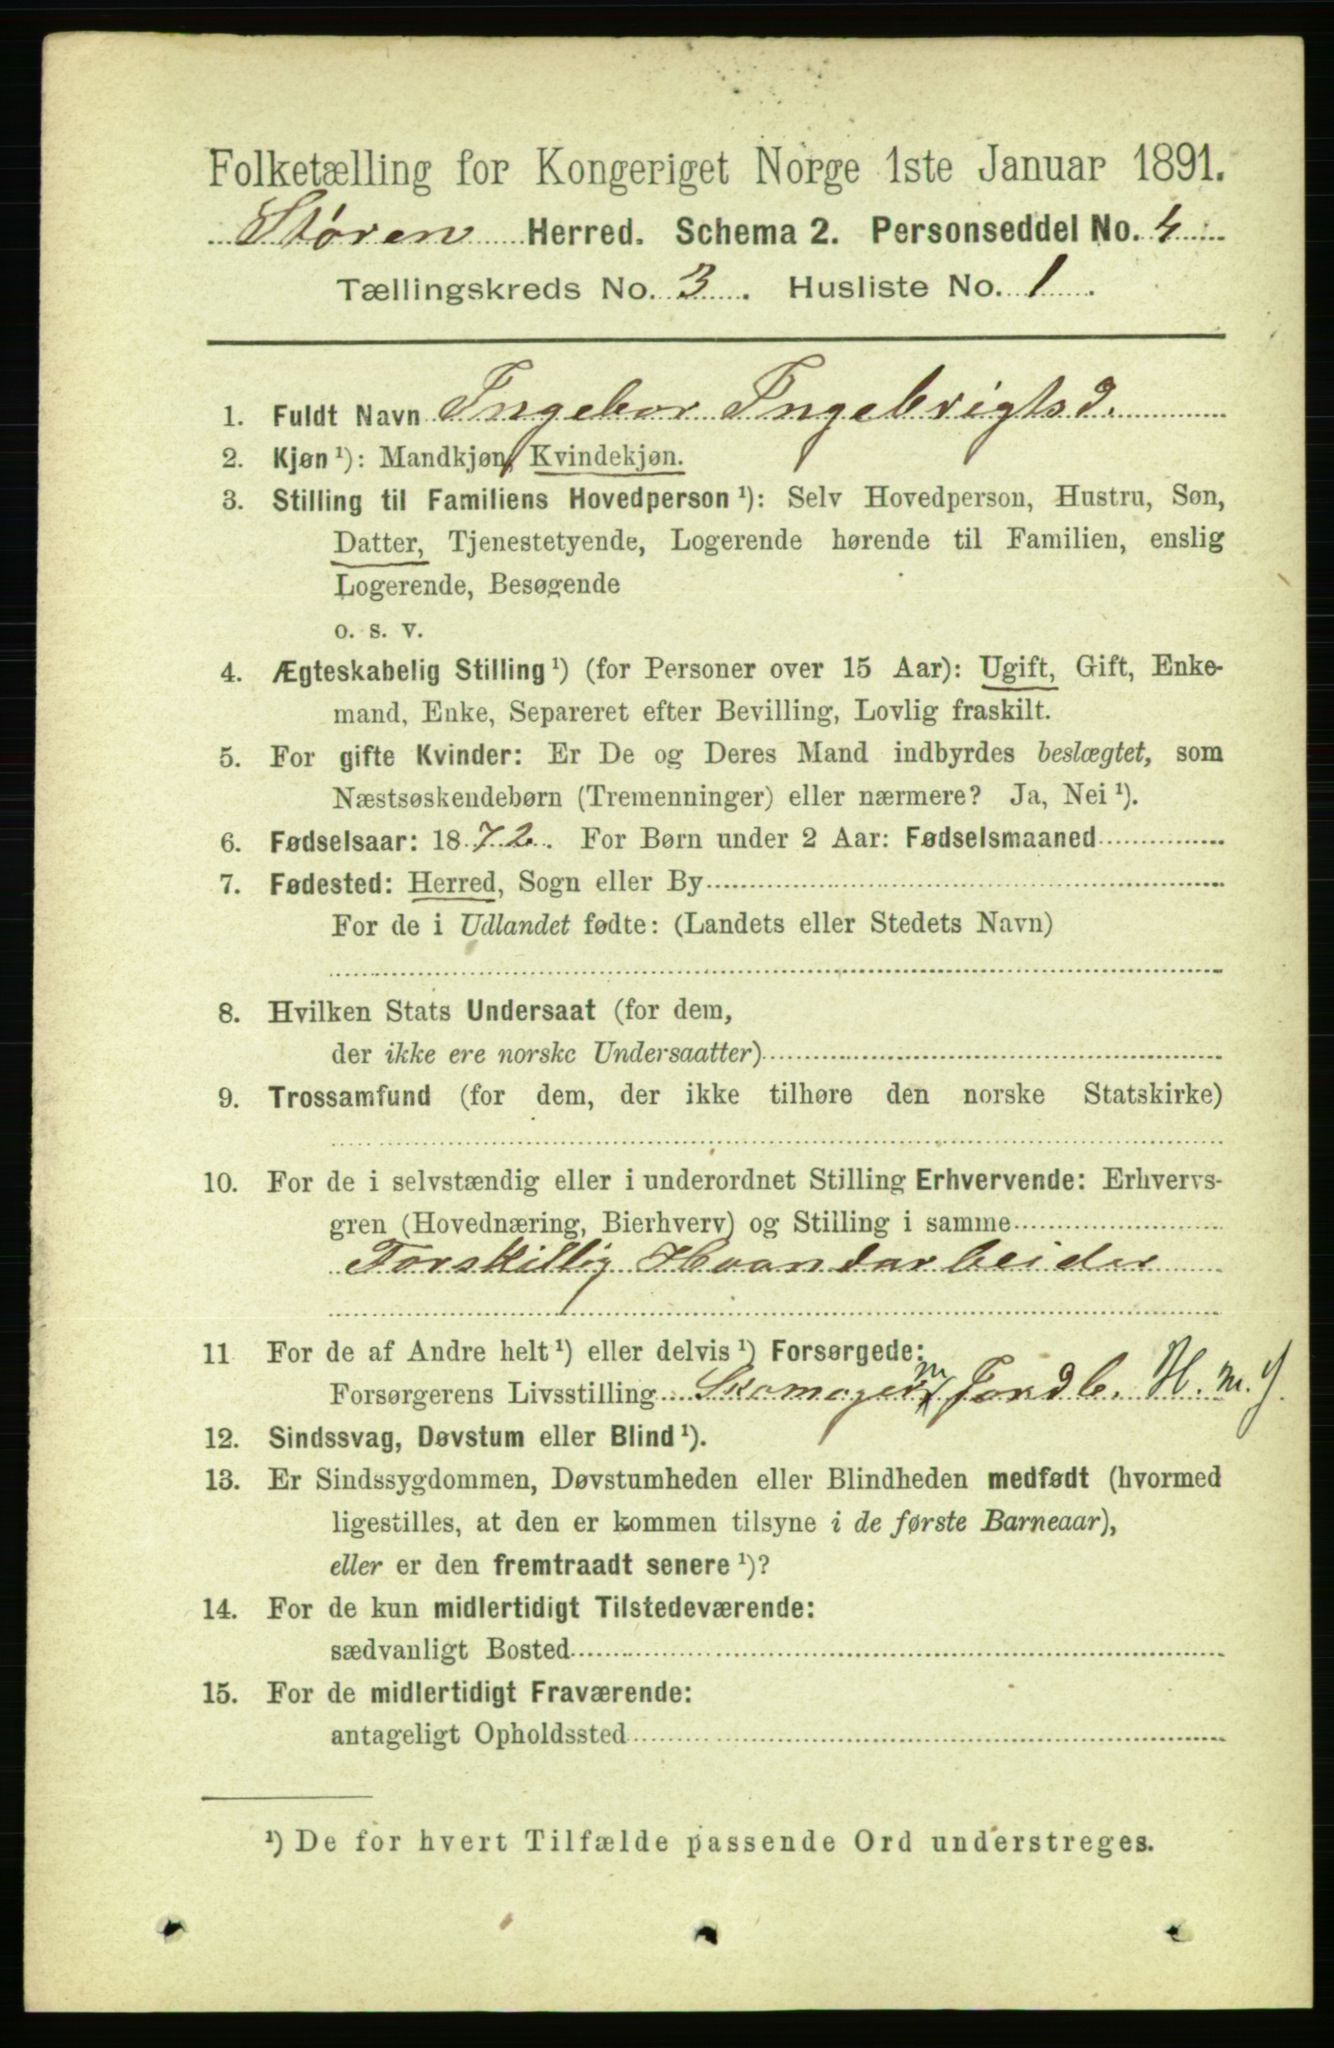 Folketælling for Kongeriget Norge 1ste Januar 1891.
Støren Herred. Schema 2. Personseddel No. 4
Tællingskreds No. 3. Husliste No. 1.
1. Fuldt Navn Ingebor Ingebrigtsd.
2. Kjøn ¹): Mandkjøn, Kvindekjøn.
3. Stilling til Familiens Hovedperson ¹): Selv Hovedperson, Hustru, Søn,
Datter, Tjenestetyende, Logerende hørende til Familien, enslig
Logerende, Besøgende
o. s. v.
4. Ægteskabelig Stilling ¹) (for Personer over 15 Aar): Ugift, Gift, Enke-
mand, Enke, Separeret efter Bevilling, Lovlig fraskilt.
5. For gifte Kvinder: Er De og Deres Mand indbyrdes beslægtet, som
Næstsøskendebørn (Tremenninger) eller nærmere? Ja, Nei ¹).
6. Fødselsaar: 1872. For Børn under 2 Aar: Fødselsmaaned
7. Fødested: Herred, Sogn eller By
For de i Udlandet fødte: (Landets eller Stedets Navn)
8. Hvilken Stats Undersaat (for dem,
der ikke ere norske Undersaatter)
9. Trossamfund (for dem, der ikke tilhøre den norske Statskirke)
10. For de i selvstændig eller i underordnet Stilling Erhvervende: Erhvervs-
gren (Hovednæring, Bierhverv) og Stilling i samme
Forskillig Haandarbeider
11 For de af Andre helt ¹) eller delvis ¹) Forsørgede:
Forsørgerens Livsstilling Skomager Jordb. H. m. J.
12. Sindssvag, Døvstum eller Blind ¹).
13. Er Sindssygdommen, Døvstumheden eller Blindheden medfødt (hvormed
ligestilles, at den er kommen tilsyne i de første Barneaar),
eller er den fremtraadt senere ¹)?
14. For de kun midlertidigt Tilstedeværende:
sædvanligt Bosted
15. For de midlertidigt Fraværende:
antageligt Opholdssted
¹) De for hvert Tilfælde passende Ord understreges.